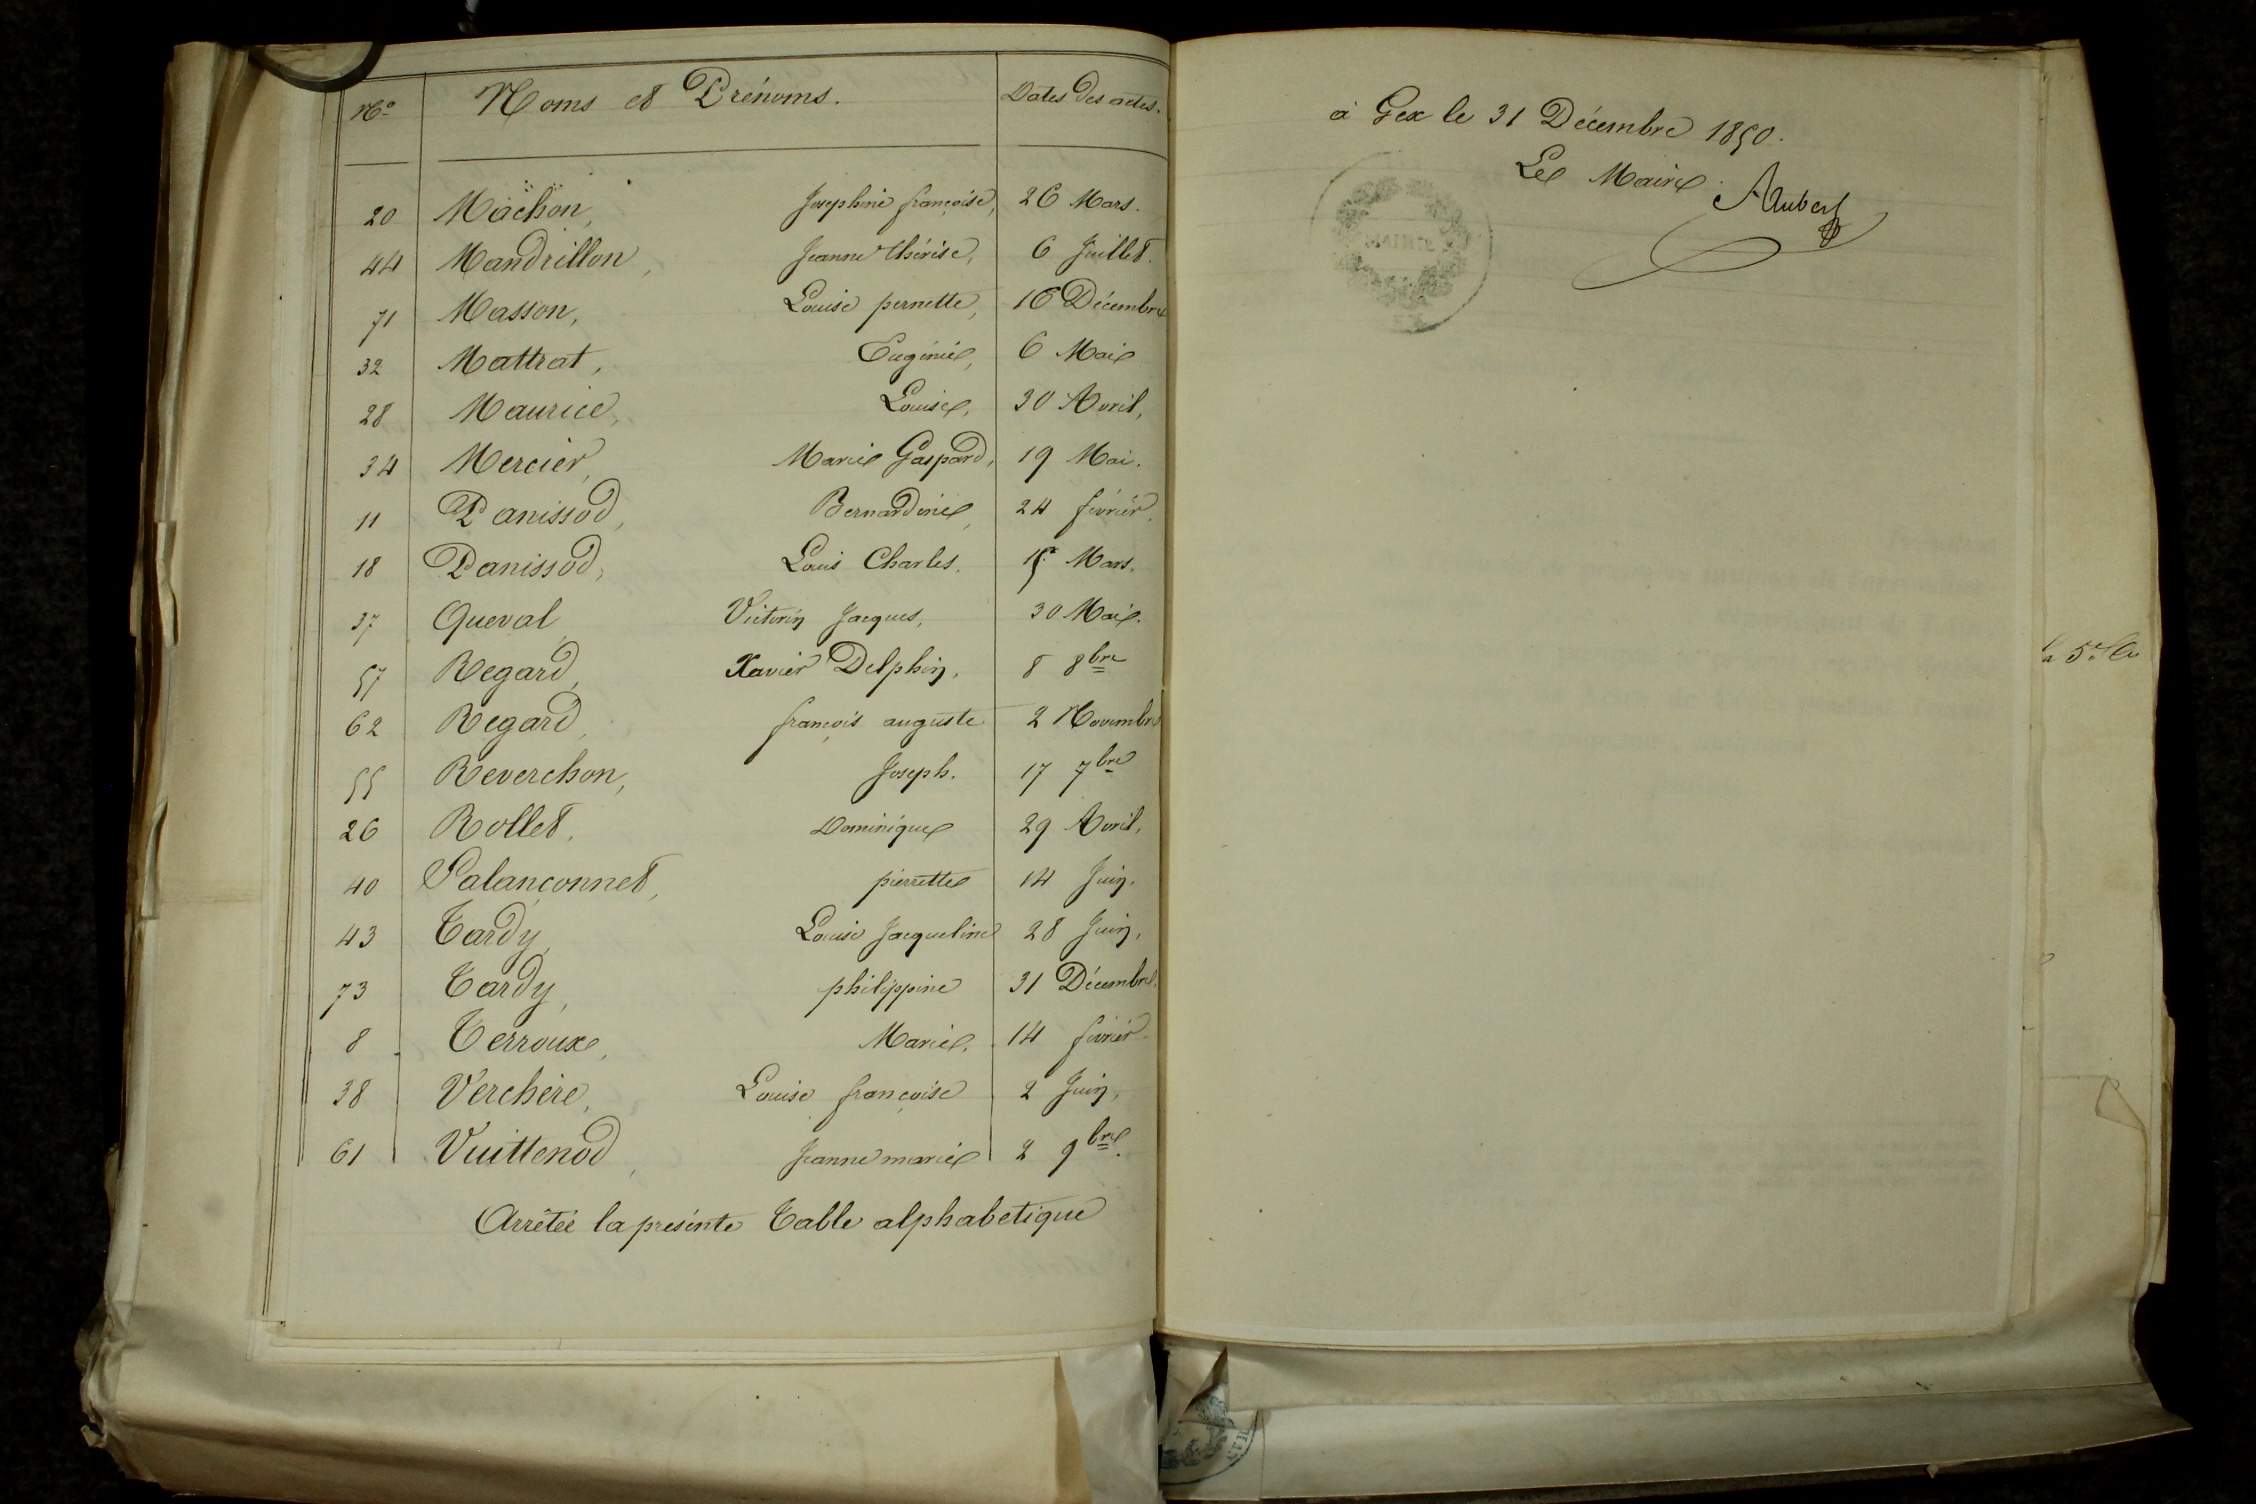 Nº Noms et Prénoms. Dates des actes.
20 Machon, Josephine françoise, 26 Mars.
44 Mandrillon, Jeanne thérèse, 6 Juillet.
71 Masson, Louise pernette, 16 Décembre
32 Mattrat, Eugénie, 6 Mai
28 Maurice, Louise, 30 Avril,
34 Mercier, Marie Gaspard, 19 Mai.
11 Panissod, Bernardine, 24 février.
18 Panissod, Louis Charles. 15 Mars.
37 Queval, Victorin Jacques, 30 Mai.
57 Regard, Xavier Delphin, 8 8bre
62 Regard, françois auguste 2 Novembre
55 Reverchon, Joseph. 17 7bre
26 Rollet, Dominique 29 Avril,
40 Salançonnet, pierrette 14 Juin.
43 Tardy, Louise Jacqueline 28 Juin,
73 Tardy, philippine 31 Décembre.
8 Terroux, Marie. 14 février
38 Verchère, Louise françoise 2 Juin,
61 Vuittenod, Jeanne marie 2 9bre.
Arrêtée la présente Table alphabetique
à Gex le 31 Décembre 1850.
Le Maire.
Aubert
MAIRIE